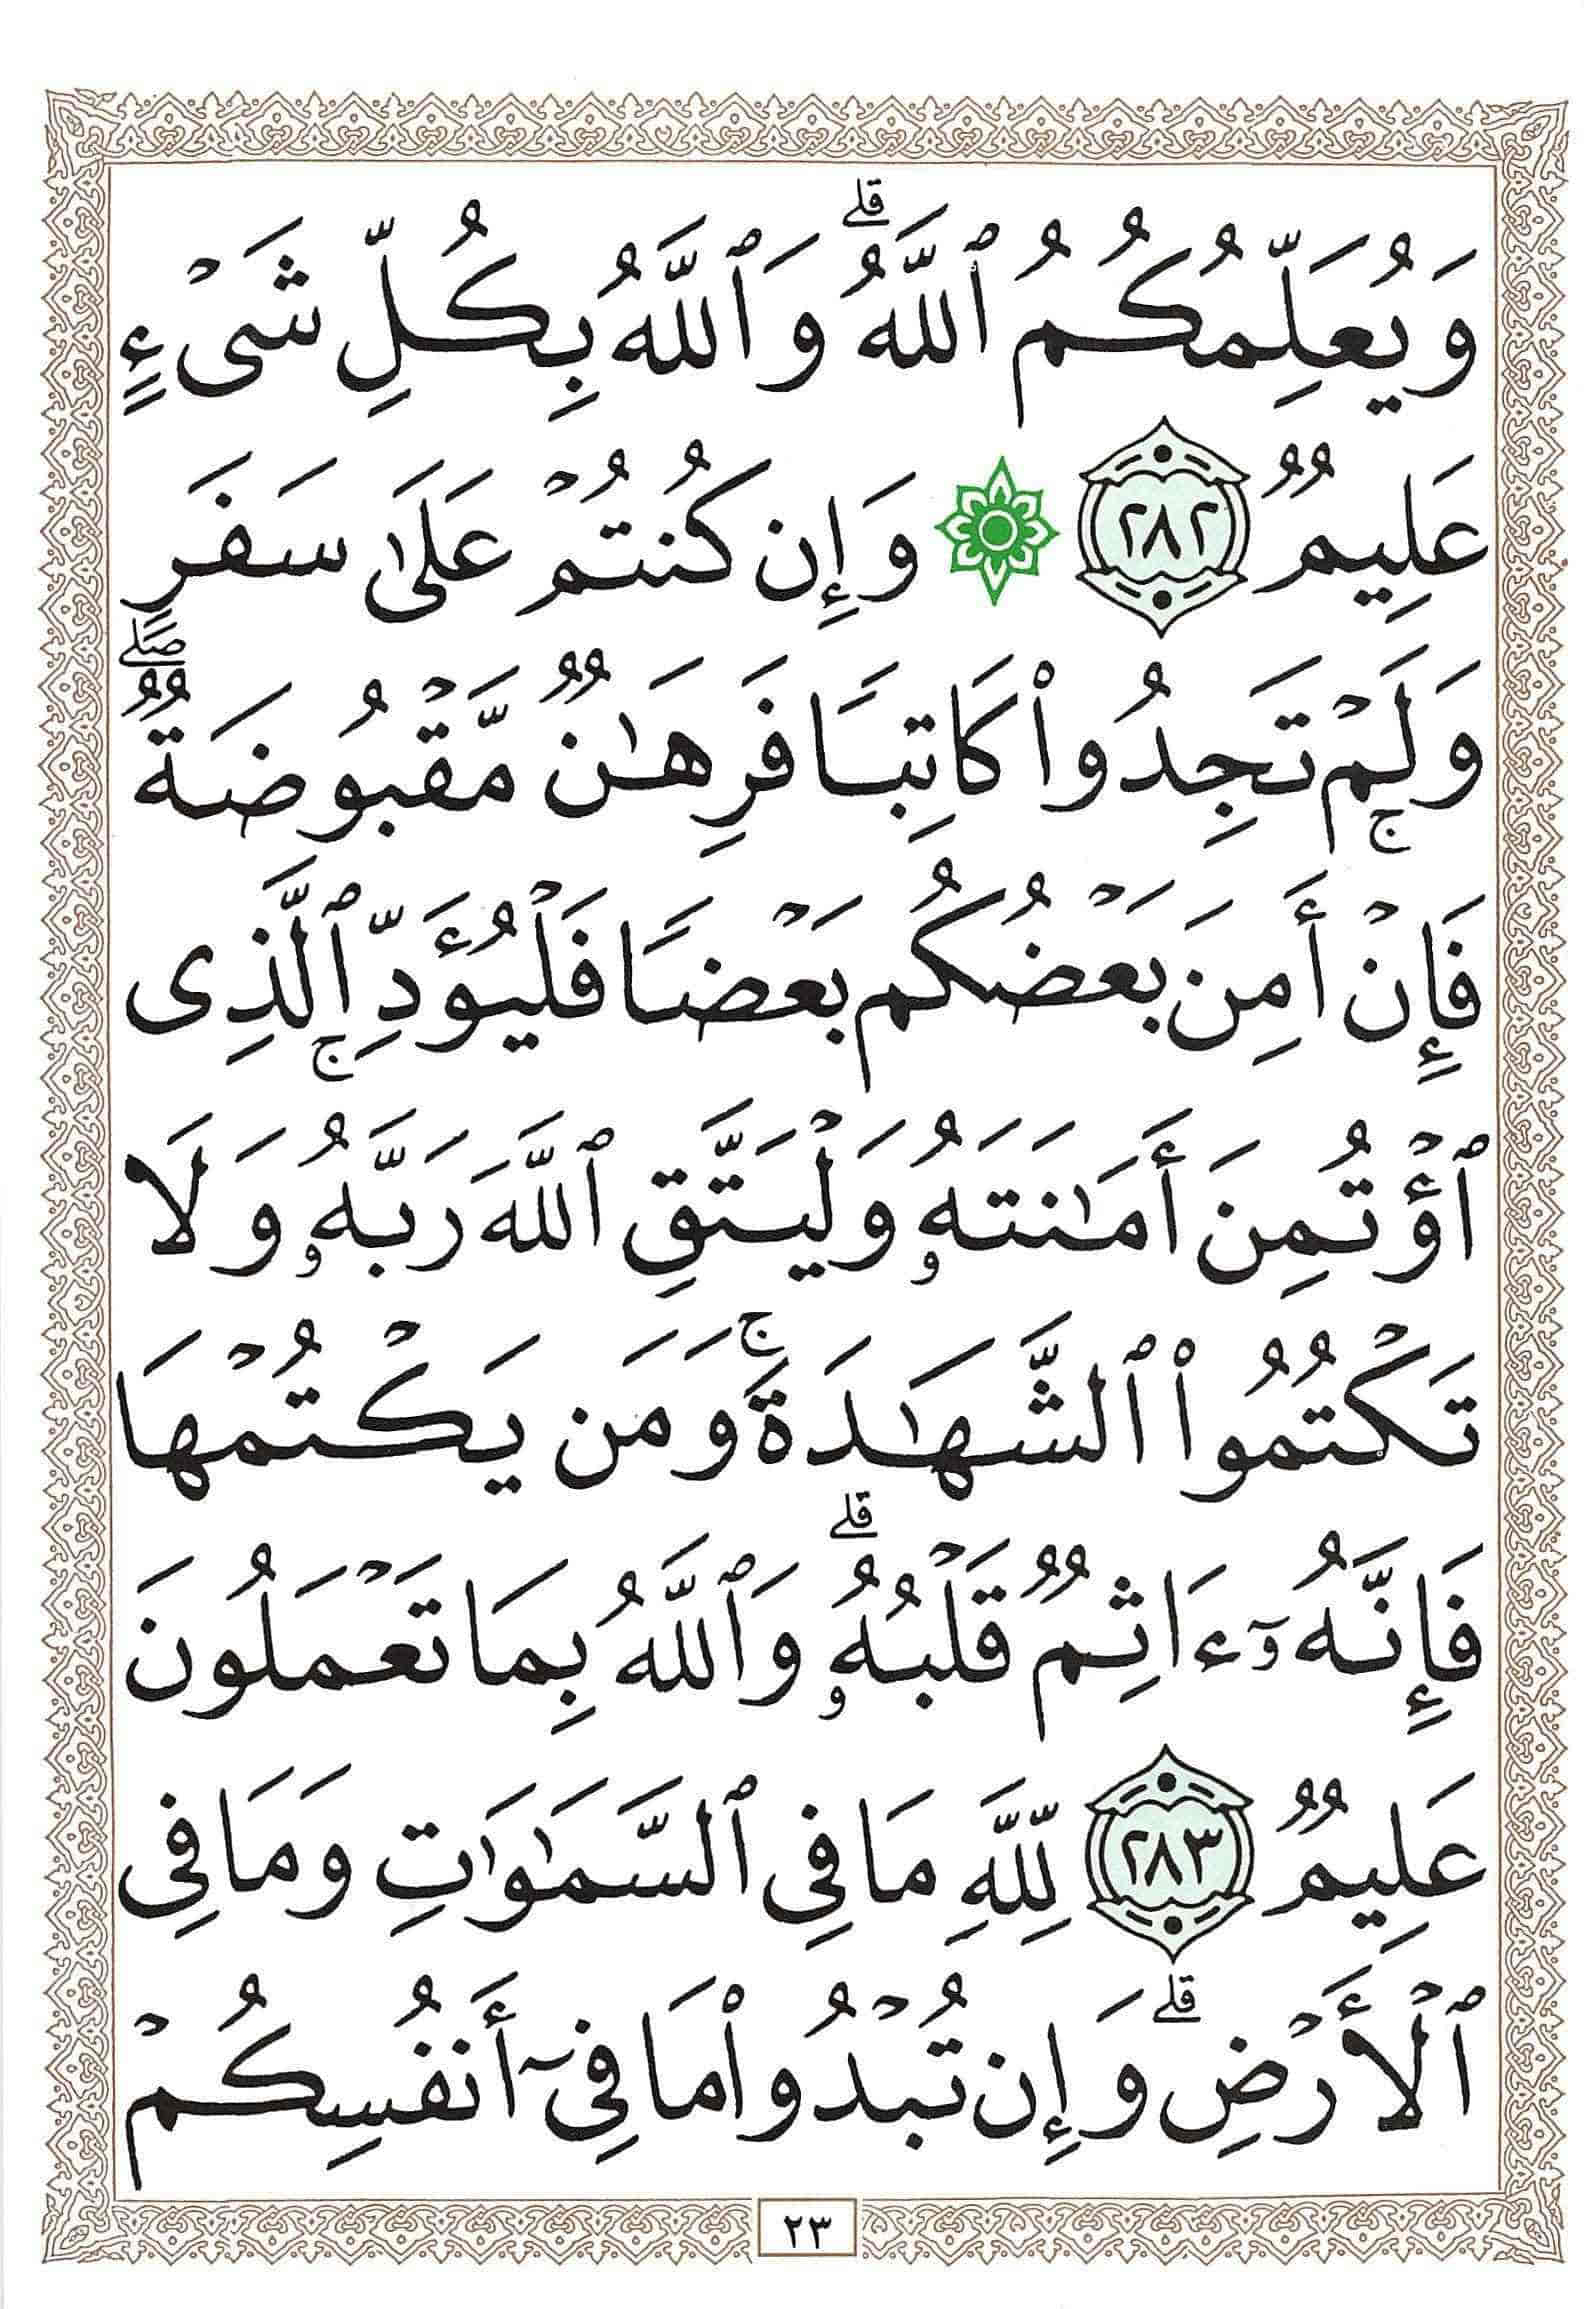 وَيُعَلِّمُكُمُ ٱللَّهُ ۗ وَٱللَّهُ بِكُلِّ شَىْءٍ
عَلِيمٌ ٢٨٢ ۞ وَإِن كُنتُمْ عَلَىٰ سَفَرٍ
وَلَمْ تَجِدُوا۟ كَاتِبًا فَرِهَـٰنٌ مَّقْبُوضَةٌ ۖ
فَإِنْ أَمِنَ بَعْضُكُم بَعْضًا فَلْيُؤَدِّ ٱلَّذِى
ٱؤْتُمِنَ أَمَـٰنَتَهُۥ وَلْيَتَّقِ ٱللَّهَ رَبَّهُۥ وَلَا
تَكْتُمُوا۟ ٱلشَّهَـٰدَةَ ۚ وَمَن يَكْتُمْهَا
فَإِنَّهُۥٓ ءَاثِمٌ قَلْبُهُۥ ۗ وَٱللَّهُ بِمَا تَعْمَلُونَ
عَلِيمٌ ٢٨٣ لِلَّهِ مَا فِى ٱلسَّمَـٰوَٰتِ وَمَا فِى
ٱلْأَرْضِ ۗ وَإِن تُبْدُوا۟ مَا فِىٓ أَنفُسِكُمْ
٢٣